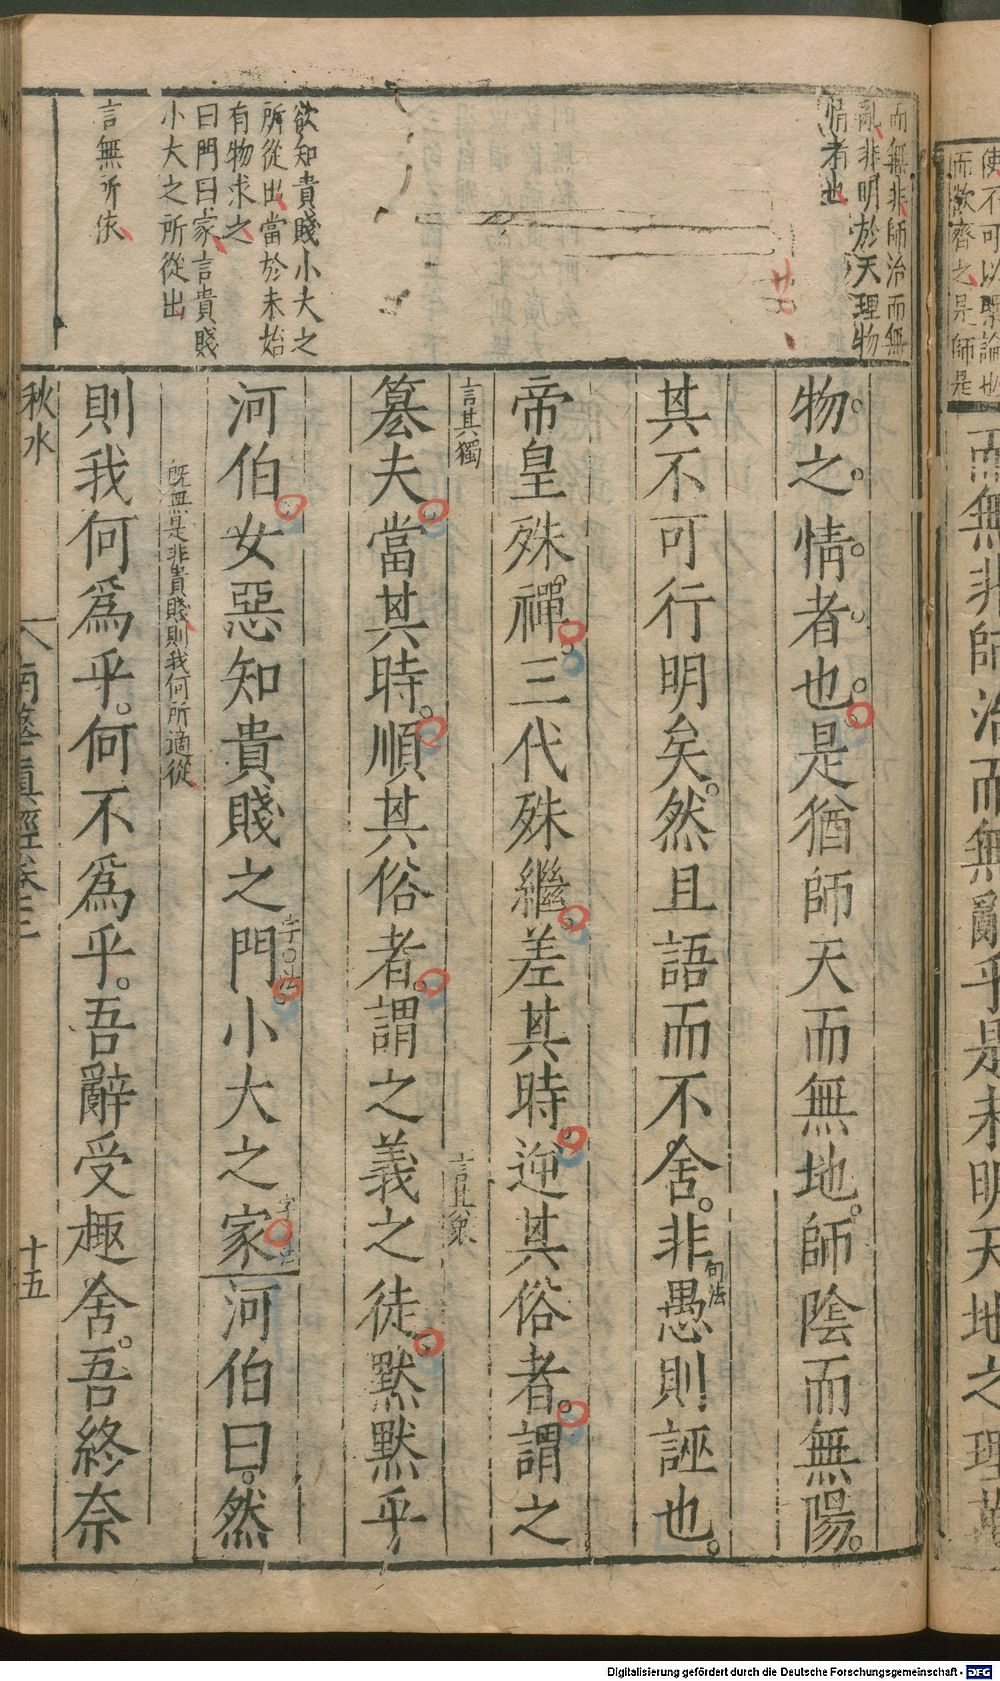 使不可以槩論也
而欲齊之是師是
而無非師治而無亂乎是未明天地之理萬
而無非師治而無
亂非明於天理物
情者也
欲知貴賤小大之
所從出當於未始
有物求之
曰門曰家言貴賤
小大之所從出
言無所依
物之情者也是猶師天而無地師陰而無陽
其不可行明矣然且語而不舍非愚則誣也
句法
帝皇殊禪三代殊繼差其時逆其俗者謂之
言其獨
言其衆
篡夫當其時順其俗者謂之義之徒默默乎
河伯女惡知貴賤之門小大之家河伯曰然
字法
字法
既無是非貴賤則我何所適從
則我何爲乎何不爲乎吾辭受趣舍吾終奈
秋水
南華真經卷三
十五
Digitalisierung gefördert durch die Deutsche Forschungsgemeinschaft - DFG